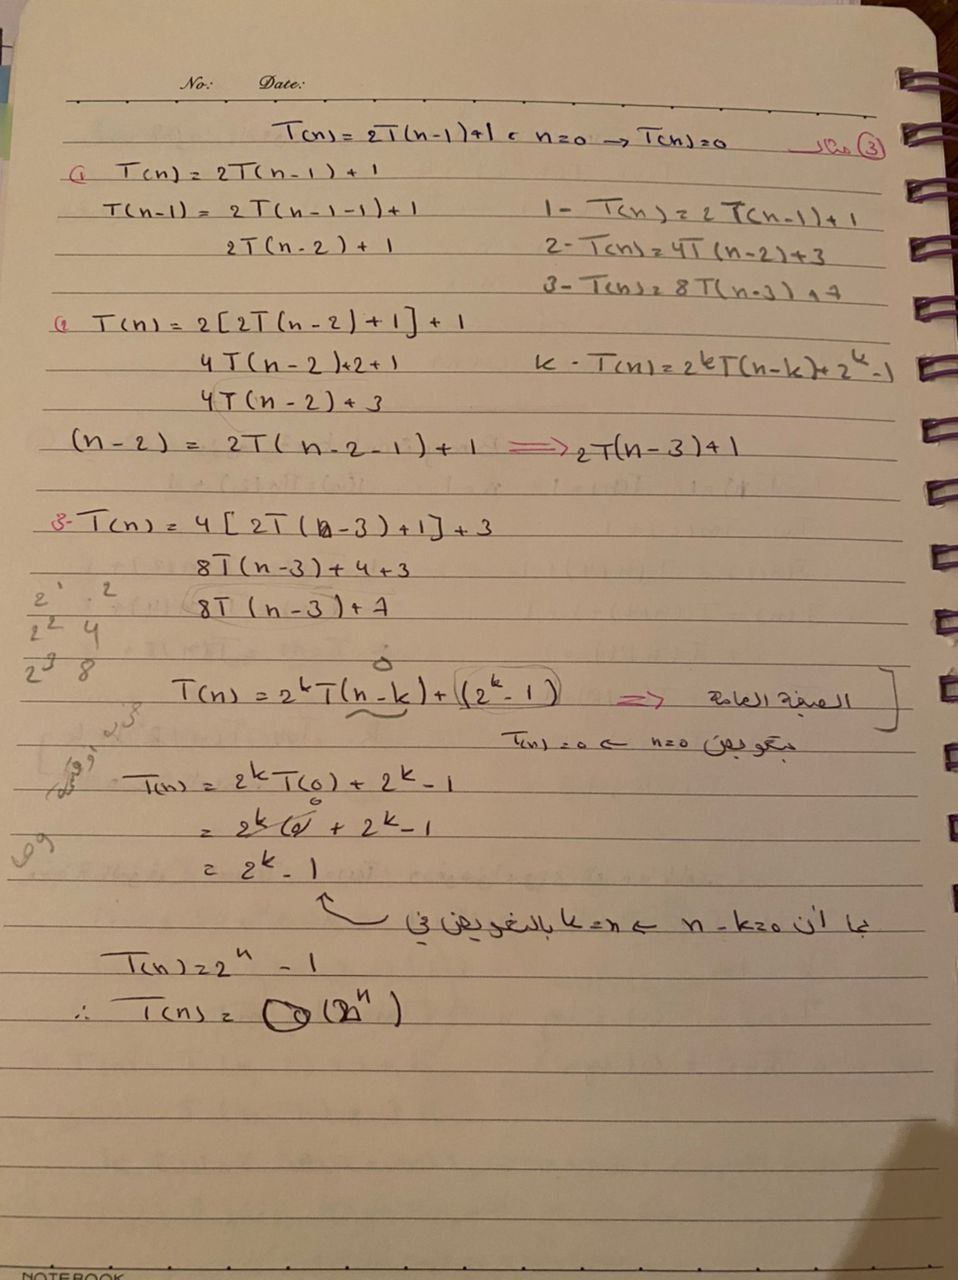 No:
Date:
مثال ③ T(n) = 2T(n-1)+1 ، n=0 → T(n)=0
① T(n) = 2T(n-1) + 1
T(n-1) = 2T(n-1-1)+1
2T(n-2) + 1
1- T(n) = 2T(n-1)+1
2- T(n) = 4T(n-2)+3
3- T(n) = 8T(n-3)+7
k - T(n) = 2^k T(n-k)+2^k-1
② T(n) = 2[2T(n-2)+1]+1
4T(n-2)+2+1
4T(n-2)+3
(n-2) = 2T(n-2-1)+1 ⟹ 2T(n-3)+1
3- T(n) = 4[2T(n-3)+1]+3
8T(n-3)+4+3
8T(n-3)+7
2^1 2
2^2 4
2^3 8
0
T(n) = 2^k T(n-k)+(2^k-1) ⟹ الصيغة العامة
بتعويض n=0 ← T(n)=0
T(n) = 2^k T(0) + 2^k - 1
0
= 2^k (0) + 2^k - 1
= 2^k - 1
بما أن n-k=0 ← k=n بالتعويض في
T(n) = 2^n - 1
∴ T(n) = O(2^n)
NOTEBOOK